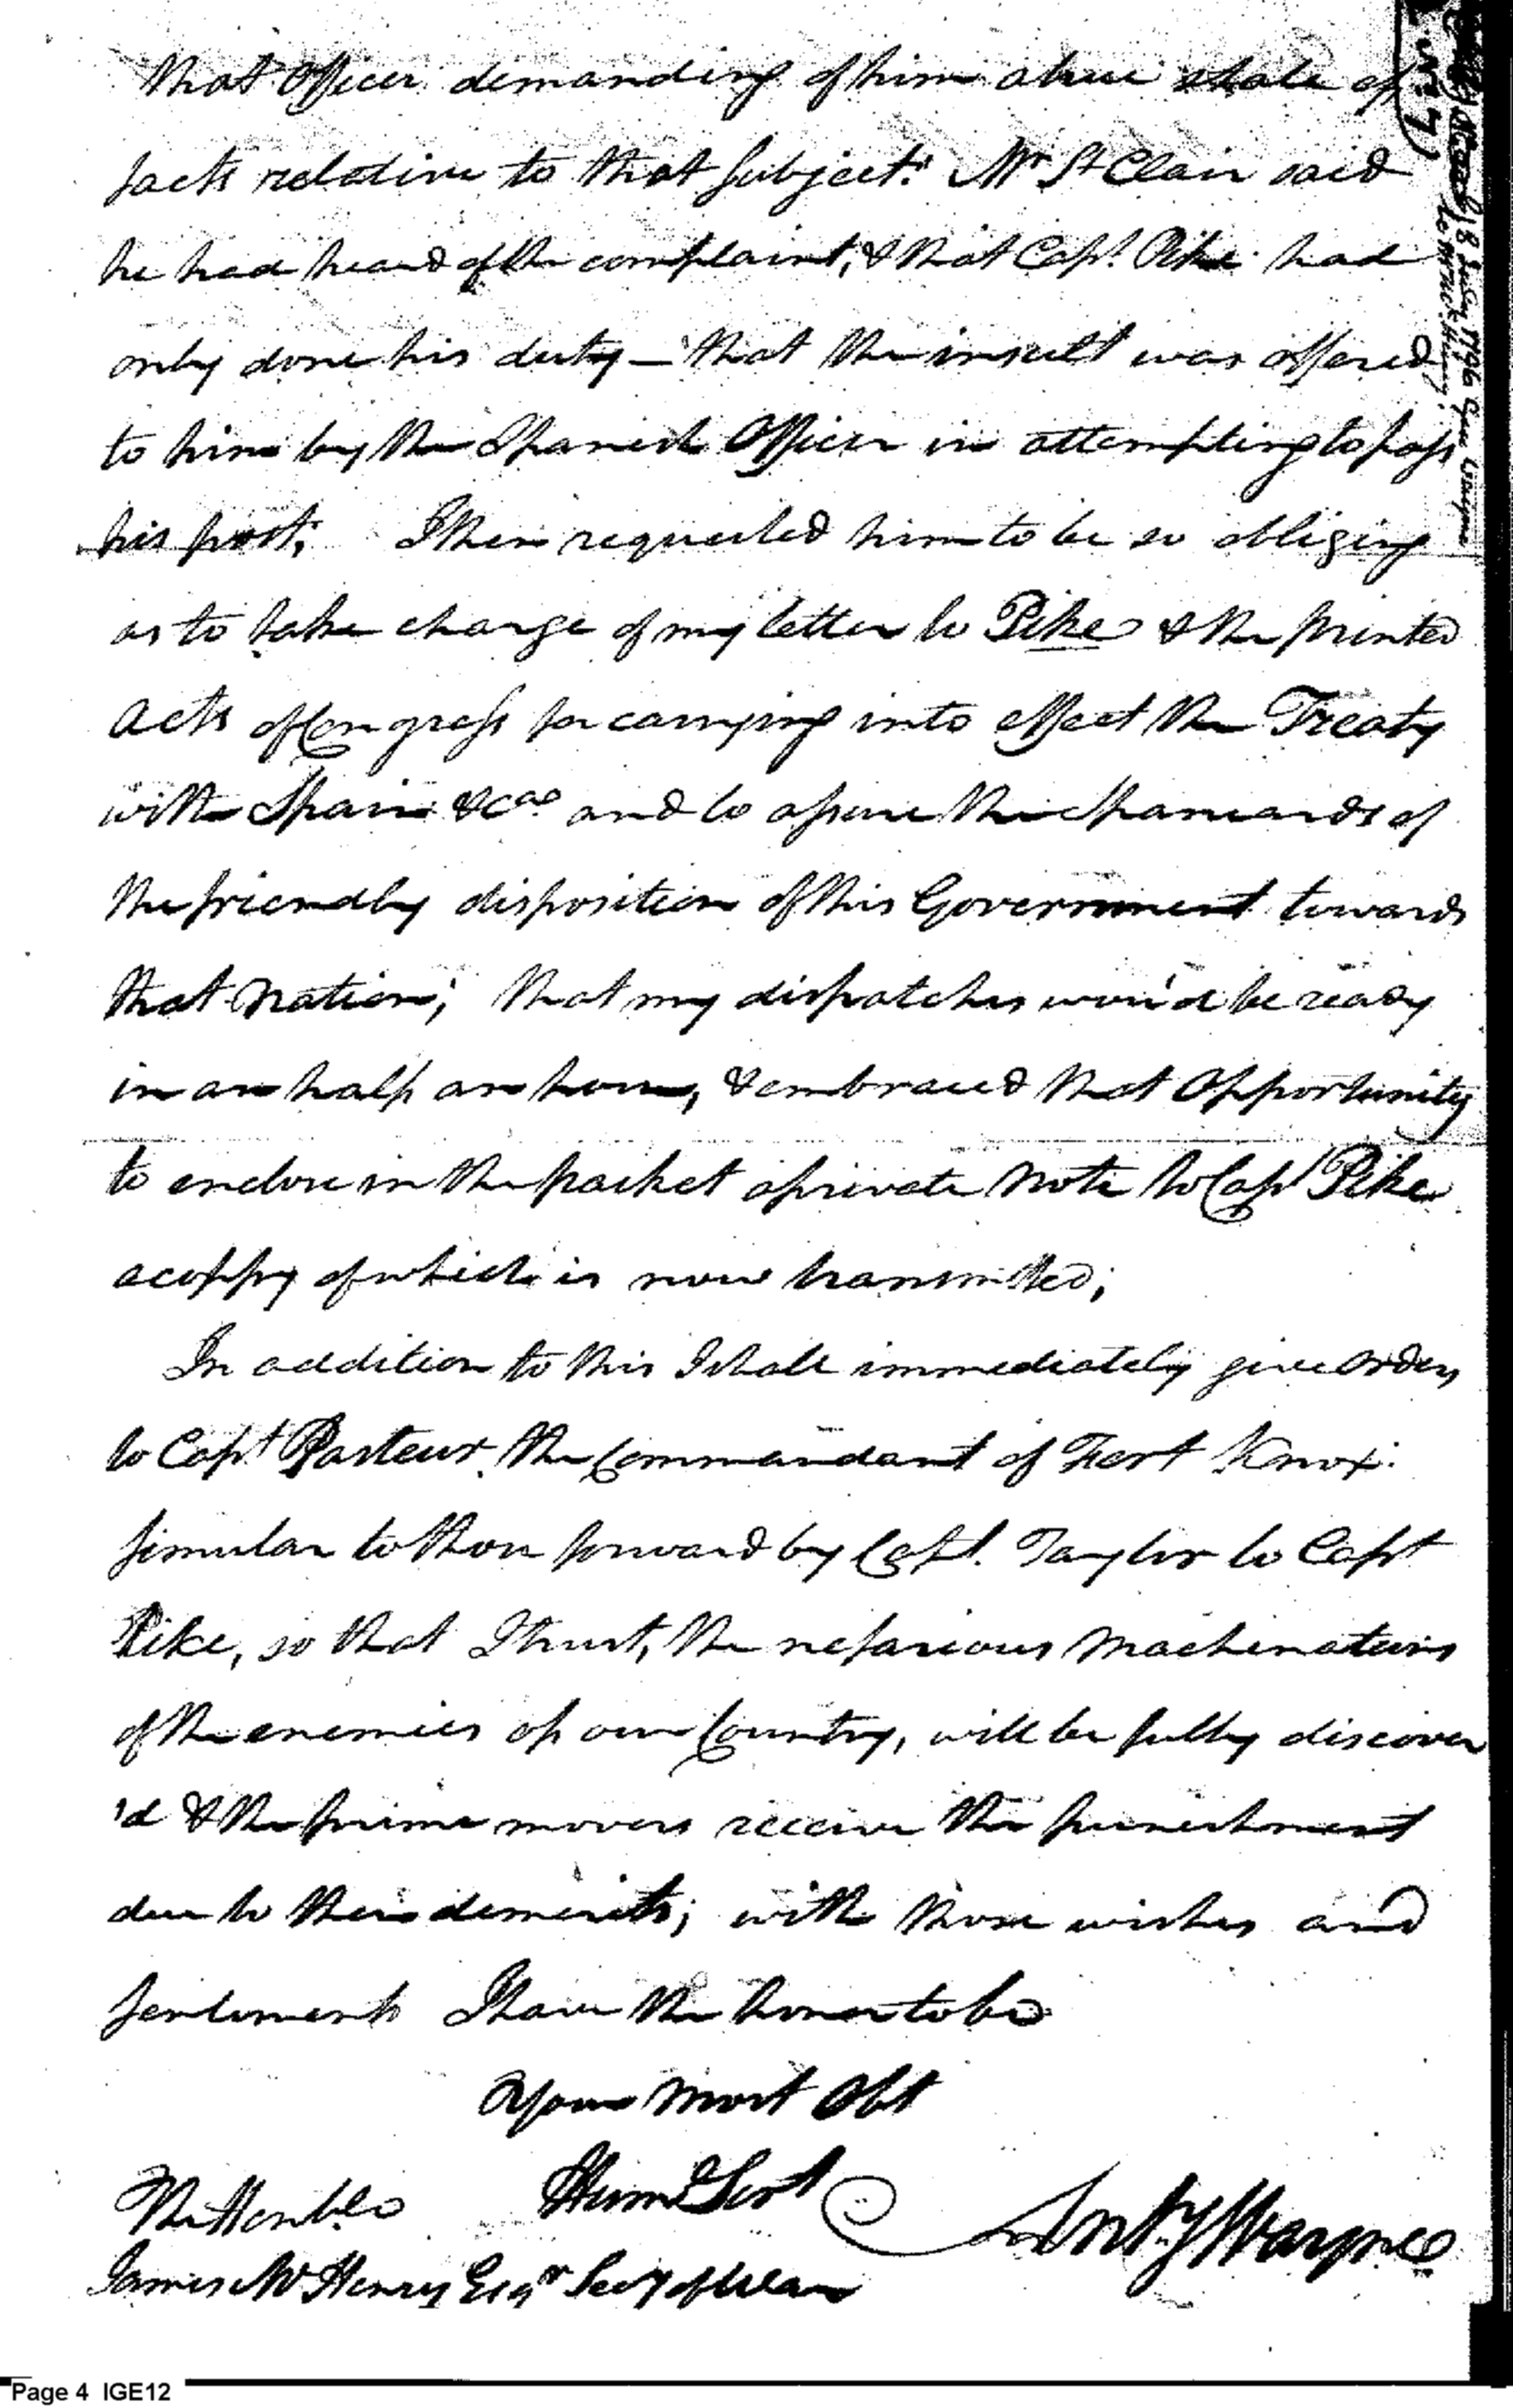 that Officer demanding of him a true state of
facts relative to that subject. Mr St Clair said
he had heard of the complaint, & that Capt. Pike had
only done his duty — that the insult was offered
to him by the Spanish Officer in attempting to pass
his post. I then requested him to be so obliging
as to take charge of my letter to Pike & the printed
acts of Congress for carrying into effect the Treaty
with Spain &ca and to assure the Spaniards of
the friendly disposition of this Government towards
that Nation; that my dispatches wou'd be ready
in an half an hour, & embraced that Opportunity
to enclose in the packet a private Note to Capt Pike
a coppy of which is now transmitted;
In addition to this I shall immediately give Orders
to Capt Pasteur the Commandant of Fort Knox
simular to those forward by Capt. Taylor to Capt
Pike, so that I trust, the nefarious Machinations
of the enemies of our Country, will be fully discover
'd & the prime movers receive the punishment
due to their demerits; with those wishes and
sentiments I have the honor to be
Your Most Obt
Huml Sert
Anty Wayne
The Honble
James McHenry Esqr Secy of War
18 July 1796 Genl Wayne
to McHenry
Page 4 IGE12